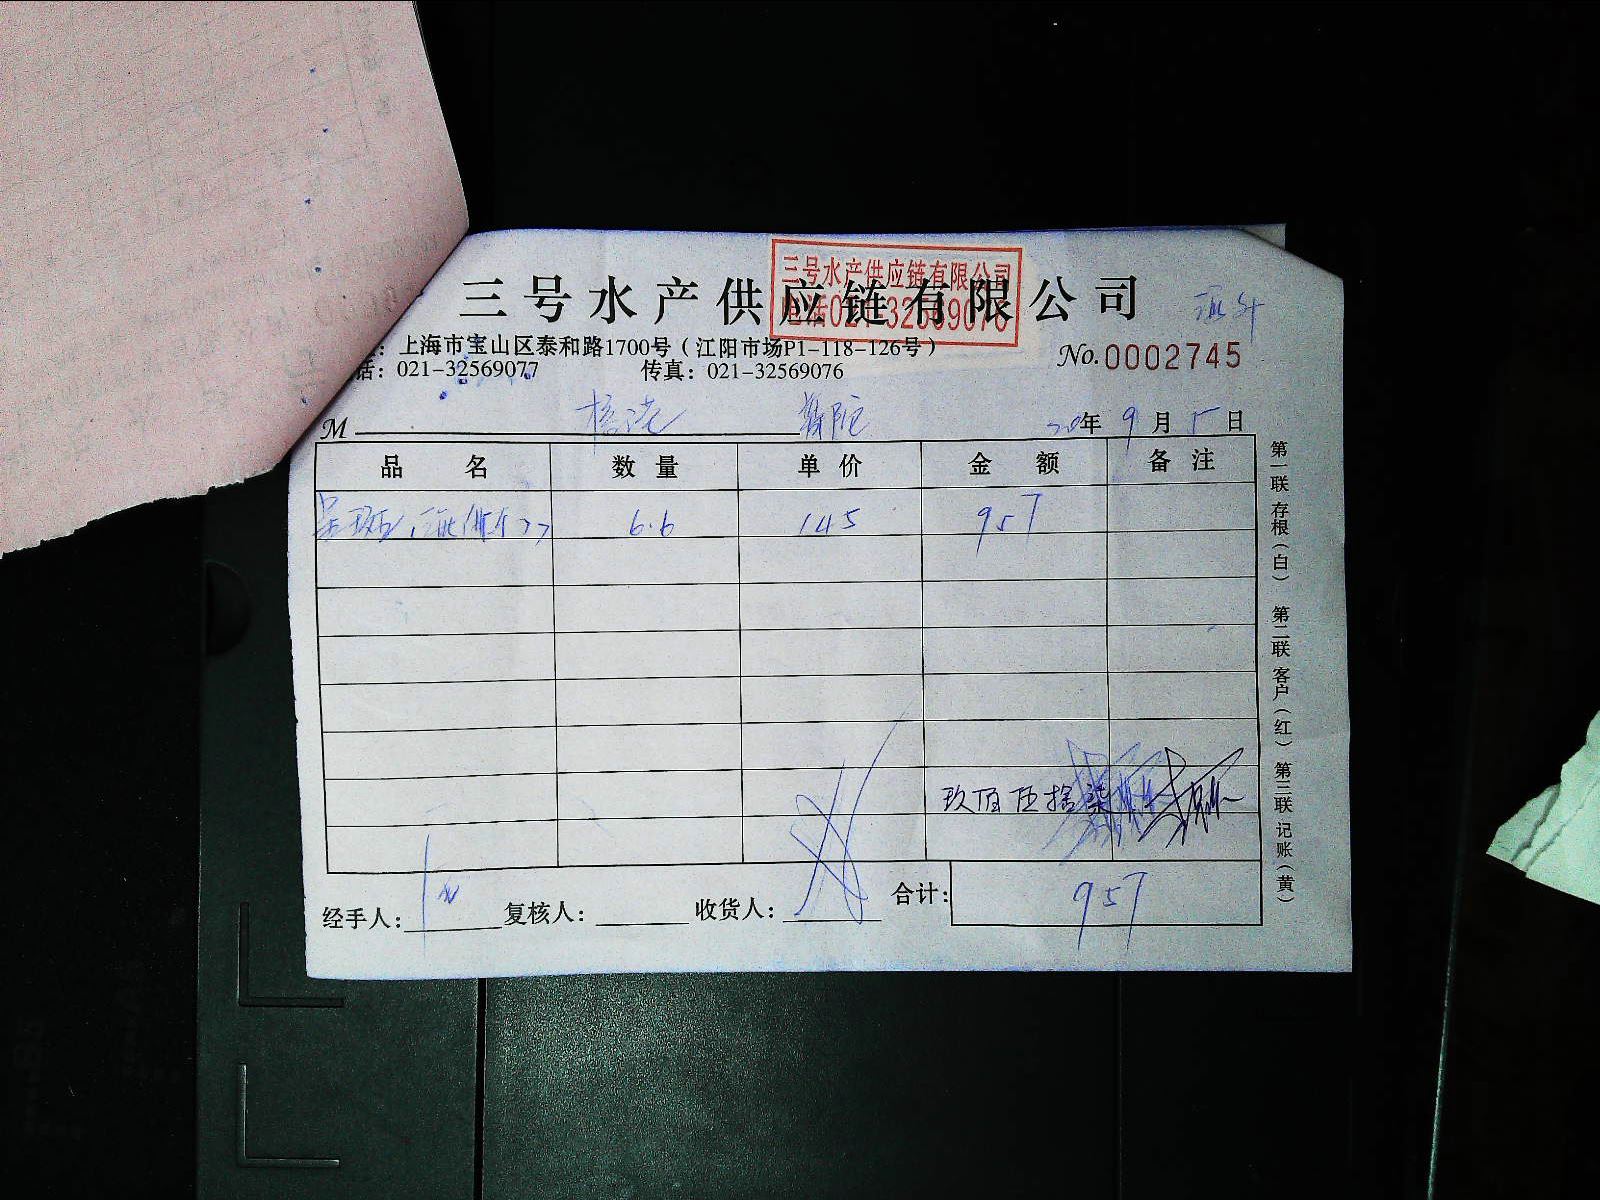 三号水产供应链有限公司
三号水产供应链有限公司
电话021-32569076
：上海市宝山区泰和路1700号（江阳市场P1-118-126号）
话：021-32569077 传真：021-32569076
No.0002745
M 20年9月5日
品名 数量 单价 金额 备注
6.6 145 957
玖佰伍拾柒
经手人： 复核人： 收货人： 合计：957
第一联 存根（白） 第二联 客户（红） 第三联 记账（黄）